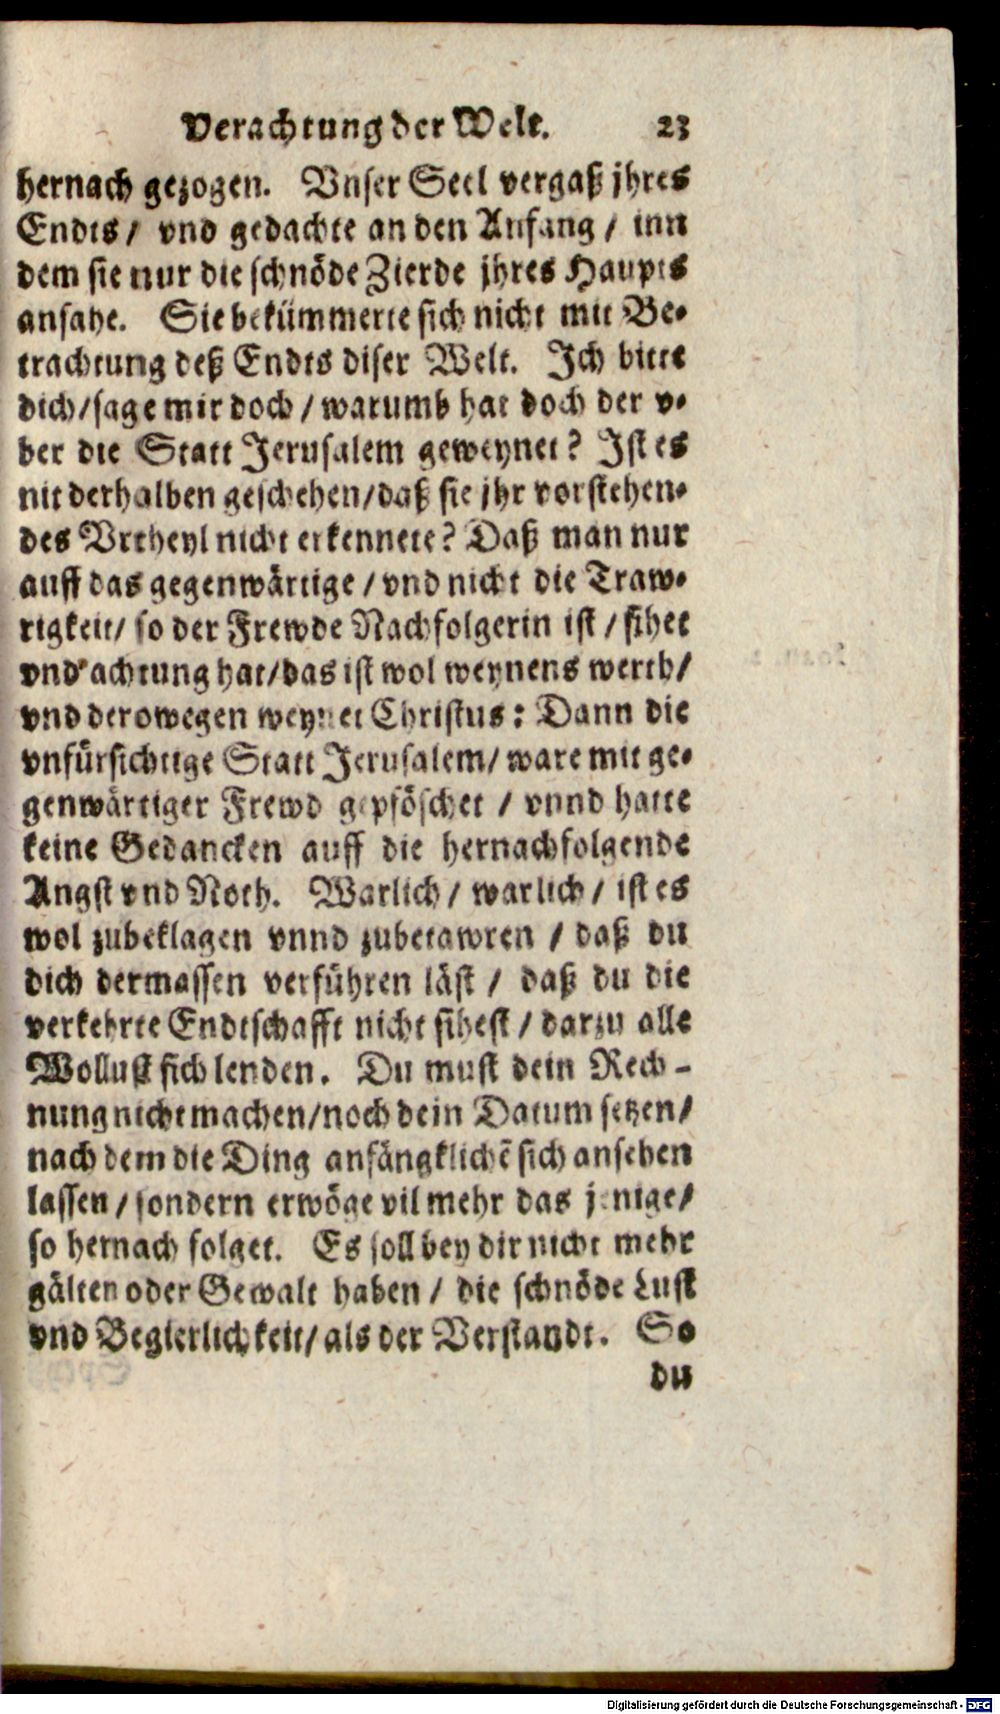 Verachtung der Welt. 23
hernach gezogen. Vnser Seel vergaß jhres
Endts / vnd gedachte an den Anfang / inn
dem sie nur die schnöde Zierde jhres Haupts
ansahe. Sie bekümmerte sich nicht mit Be-
trachtung deß Endts diser Welt. Jch bitte
dich / sage mir doch / warumb hat doch der v-
ber die Statt Jerusalem geweynet? Jst es
nit derhalben geschehen / daß sie jhr vorstehen-
des Vrtheyl nicht erkennete? Daß man nur
auff das gegenwärtige / vnd nicht die Traw-
rigkeit / so der Frewde Nachfolgerin ist / sihet
vnd achtung hat / das ist wol weynens werth /
vnd derowegen weynet Christus: Dann die
vnfürsichtige Statt Jerusalem / ware mit ge-
genwärtiger Frewd gepföschet / vnnd hatte
keine Gedancken auff die hernachfolgende
Angst vnd Noth. Warlich / warlich / ist es
wol zubeklagen vnnd zubetawren / daß du
dich dermassen verführen läst / daß du die
verkehrte Endtschafft nicht sihest / darzu alle
Wollust sich lenden. Du must dein Rech-
nung nicht machen / noch dein Datum setzen /
nach dem die Ding anfängklichẽ sich ansehen
lassen / sondern erwöge vil mehr das jenige /
so hernach folget. Es soll bey dir nicht mehr
gälten oder Gewalt haben / die schnöde Lust
vnd Begierlichkeit / als der Verstandt. So
du
Digitalisierung gefördert durch die Deutsche Forschungsgemeinschaft - DFG